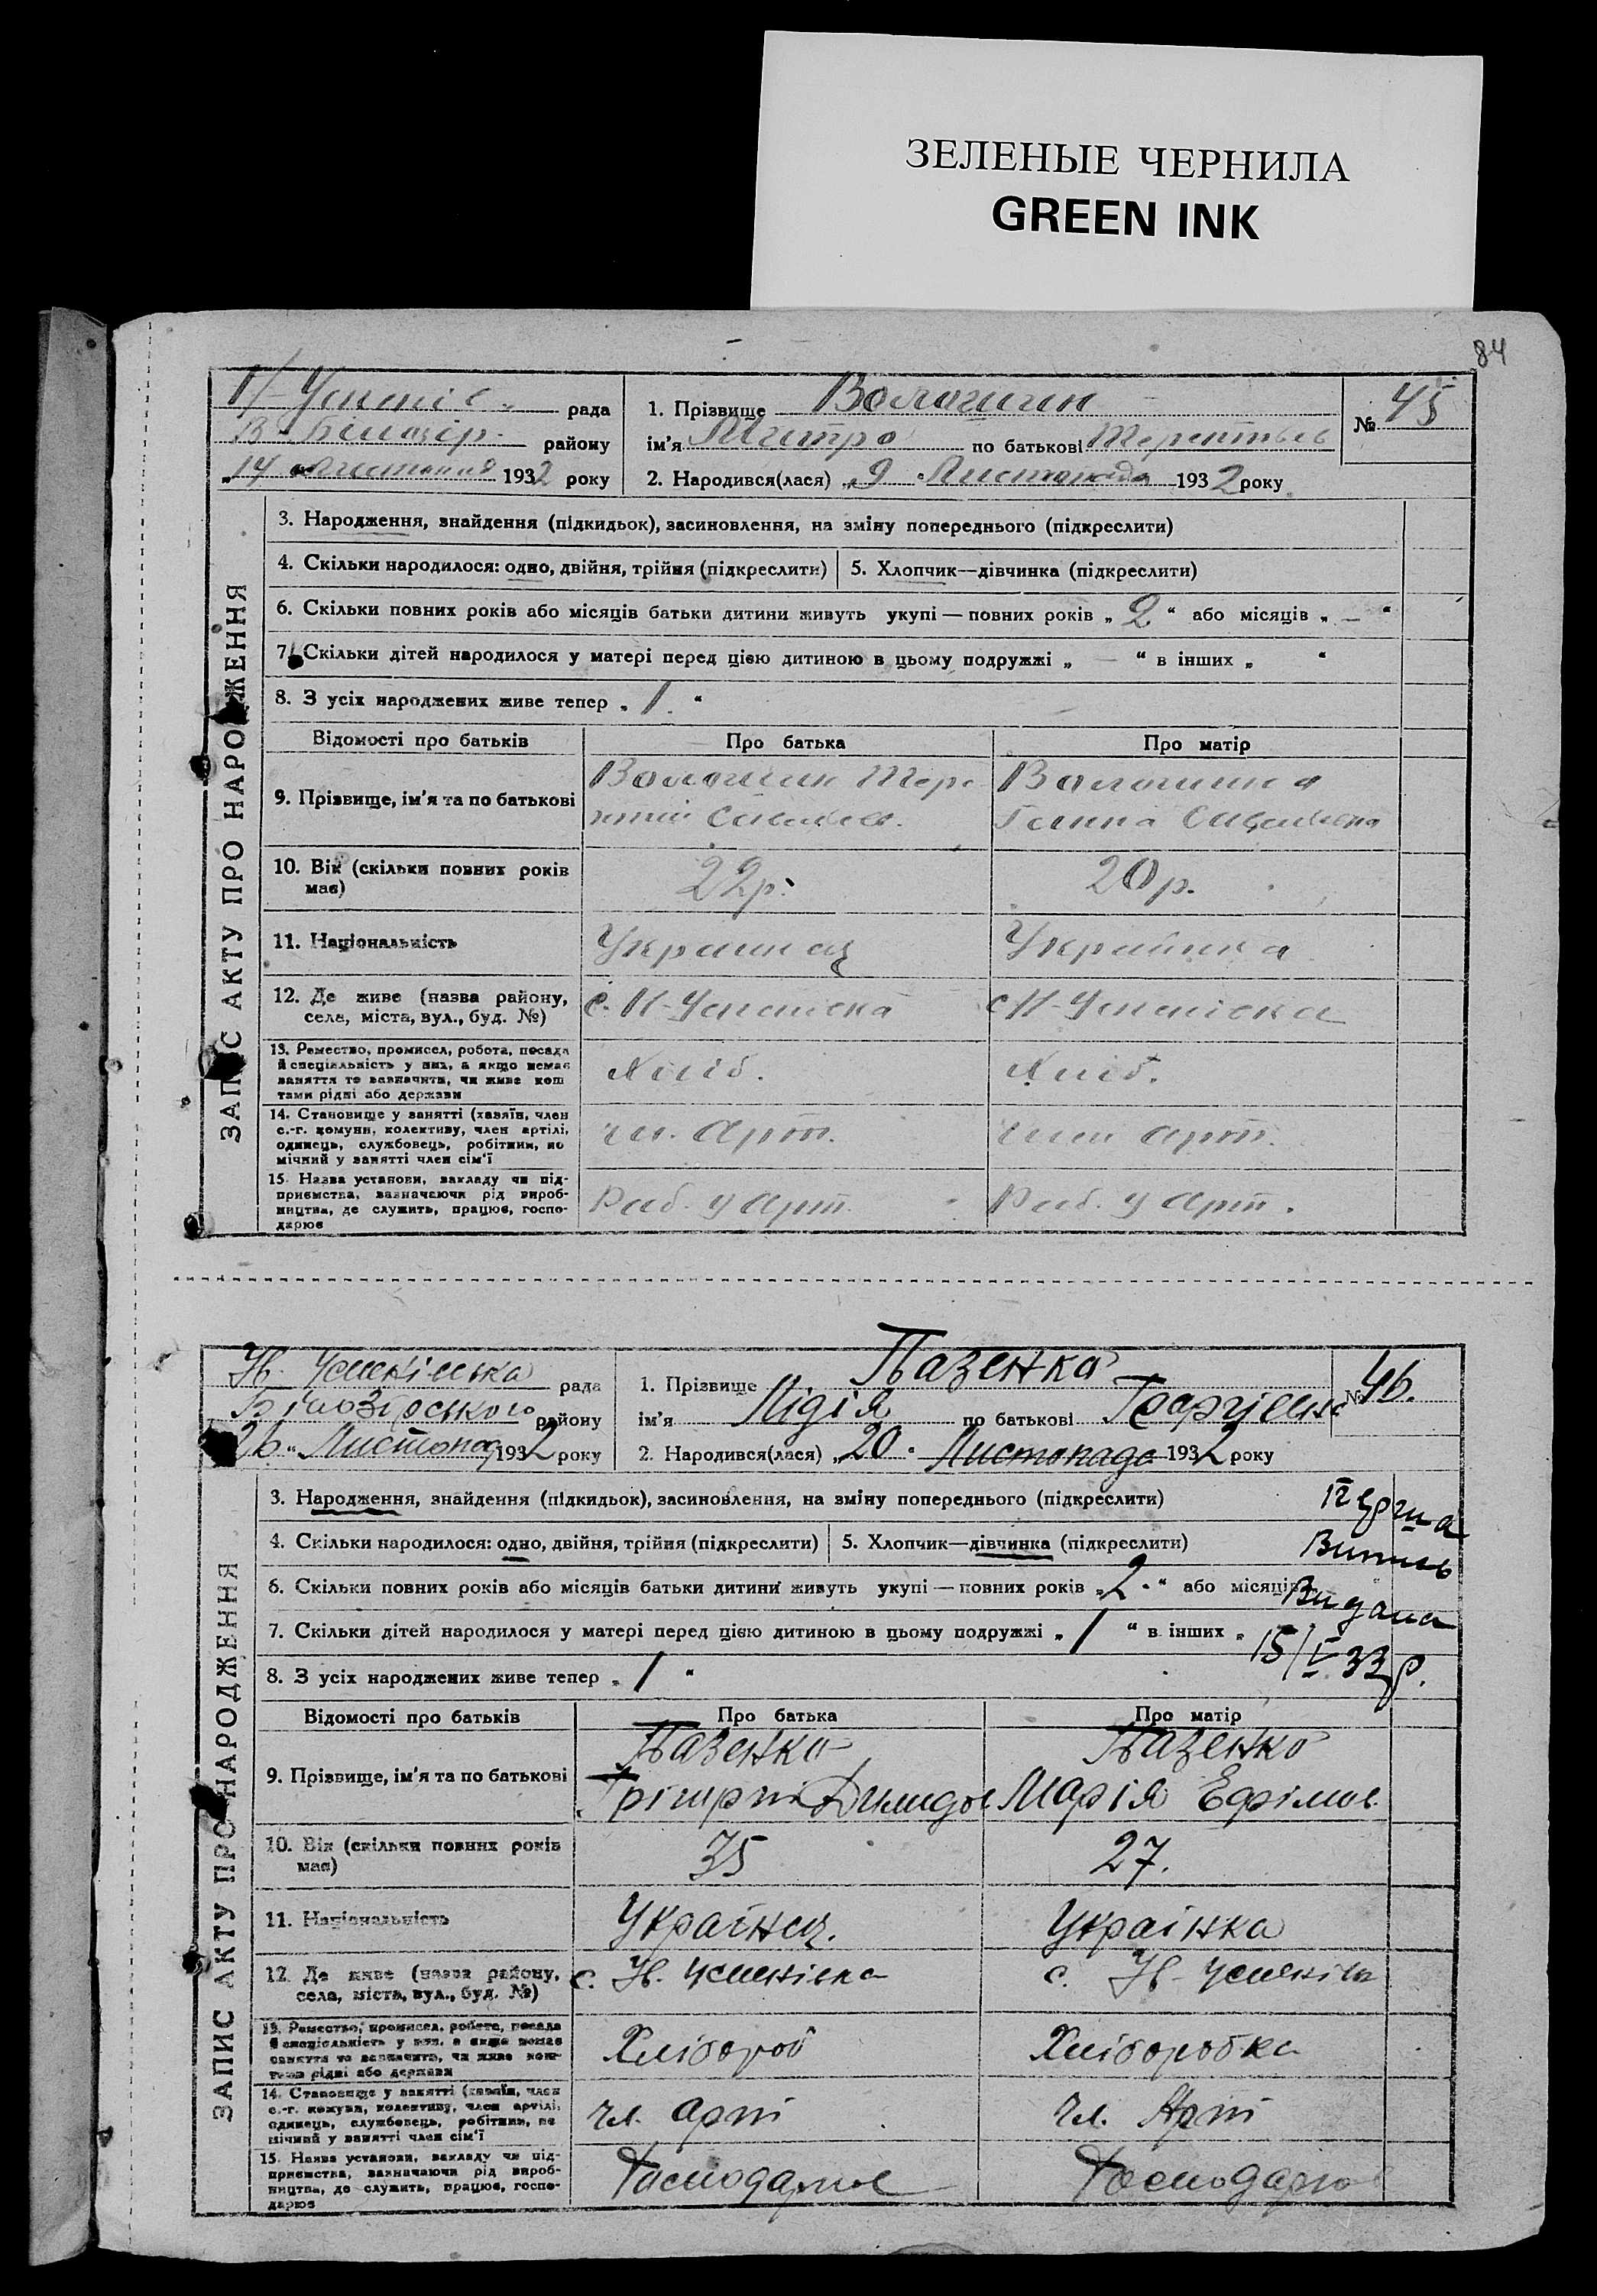 ЗЕЛЕНЫЕ ЧЕРНИЛА
GREEN INK
84
рада
району
14 Листопад 1932 року
1. Прізвище Волошин
ім'я Митро по батькові Терентьев
2. Народився(лася) „9 Листопада 1932 року
№ 45
ЗАПИС АКТУ ПРО НАРОДЖЕННЯ
3. Народження, знайдення (підкидьок), засиновлення, на зміну попереднього (підкреслити)
4. Скільки народилося: одно, двійня, трійня (підкреслити)
5. Хлопчик—дівчинка (підкреслити)
6. Скільки повних років або місяців батьки дитини живуть укупі — повних років „ 2 “ або місяців „ — “
7. Скільки дітей народилося у матері перед цією дитиною в цьому подружжі „ — “ в інших „ “
8. З усіх народжених живе тепер „ 1 “
Відомості про батьків
Про батька
Про матір
9. Прізвище, ім'я та по батькові
Волошин Тере
нтій
Волошина
Ганна
10. Вік (скільки повних років
має)
22 р.
20 р.
11. Національність
Украинец
Украинка
12. Де живе (назва району,
села, міста, вул., буд. №)
с. Н-Успенівка
с Н-Успенівка
13. Ремество, промисел, робота, посада
й спеціяльність у них, а якщо немає
заняття то зазначити, чи живе кош
тами рідні або держави
Хліб.
Хліб.
14. Становище у занятті (хазяїн, член
с.-г. комуни, колективу, член артілі,
одинець, службовець, робітник, по
мічний у занятті член сім'ї
чл. арт.
член арт.
15. Назва установи, закладу чи під-
приємства, зазначаючи рід вироб-
ництва, де служить, працює, госпо-
дарює
Раб. у арт.
Раб. у арт.
Нв. Успенівська рада
Білозірського району
26 „ Листопад 1932 року
1. Прізвище Пазенко
ім'я Лідія по батькові
2. Народився(лася) „20. Листопада 1932 року
№ 46.
ЗАПИС АКТУ ПРО НАРОДЖЕННЯ
3. Народження, знайдення (підкидьок), засиновлення, на зміну попереднього (підкреслити)
4. Скільки народилося: одно, двійня, трійня (підкреслити)
5. Хлопчик—дівчинка (підкреслити)
6. Скільки повних років або місяців батьки дитини живуть укупі — повних років „ 2 “ або місяців
7. Скільки дітей народилося у матері перед цією дитиною в цьому подружжі „ 1 “ в інших „
8. З усіх народжених живе тепер „ 1 “
Перша
Випись
Видана
15/V 33 р.
Відомості про батьків
Про батька
Про матір
9. Прізвище, ім'я та по батькові
Пазенко
Пазенко
Марія Ефімов
10. Вік (скільки повних років
має)
35
27.
11. Національність
Українец.
Українка
12. Де живе (назва району,
села, міста, вул., буд. №)
с. Нв. Успенівка
с. Нв-Успенівка
13. Ремество, промисел, робота, посада
й спеціяльність у них, а якщо немає
заняття то зазначити, чи живе кош-
тами рідні або держави
Хлібороб
Хліборобка
14. Становище у занятті (хазяїн, член
с.-г. комуни, колективу, член артілі,
одинець, службовець, робітник, по
мічний у занятті член сім'ї
чл. арт
чл. Арт
15. Назва установи, закладу чи під-
приємства, зазначаючи рід вироб-
ництва, де служить, працює, госпо-
дарює
Господарює
Господарює